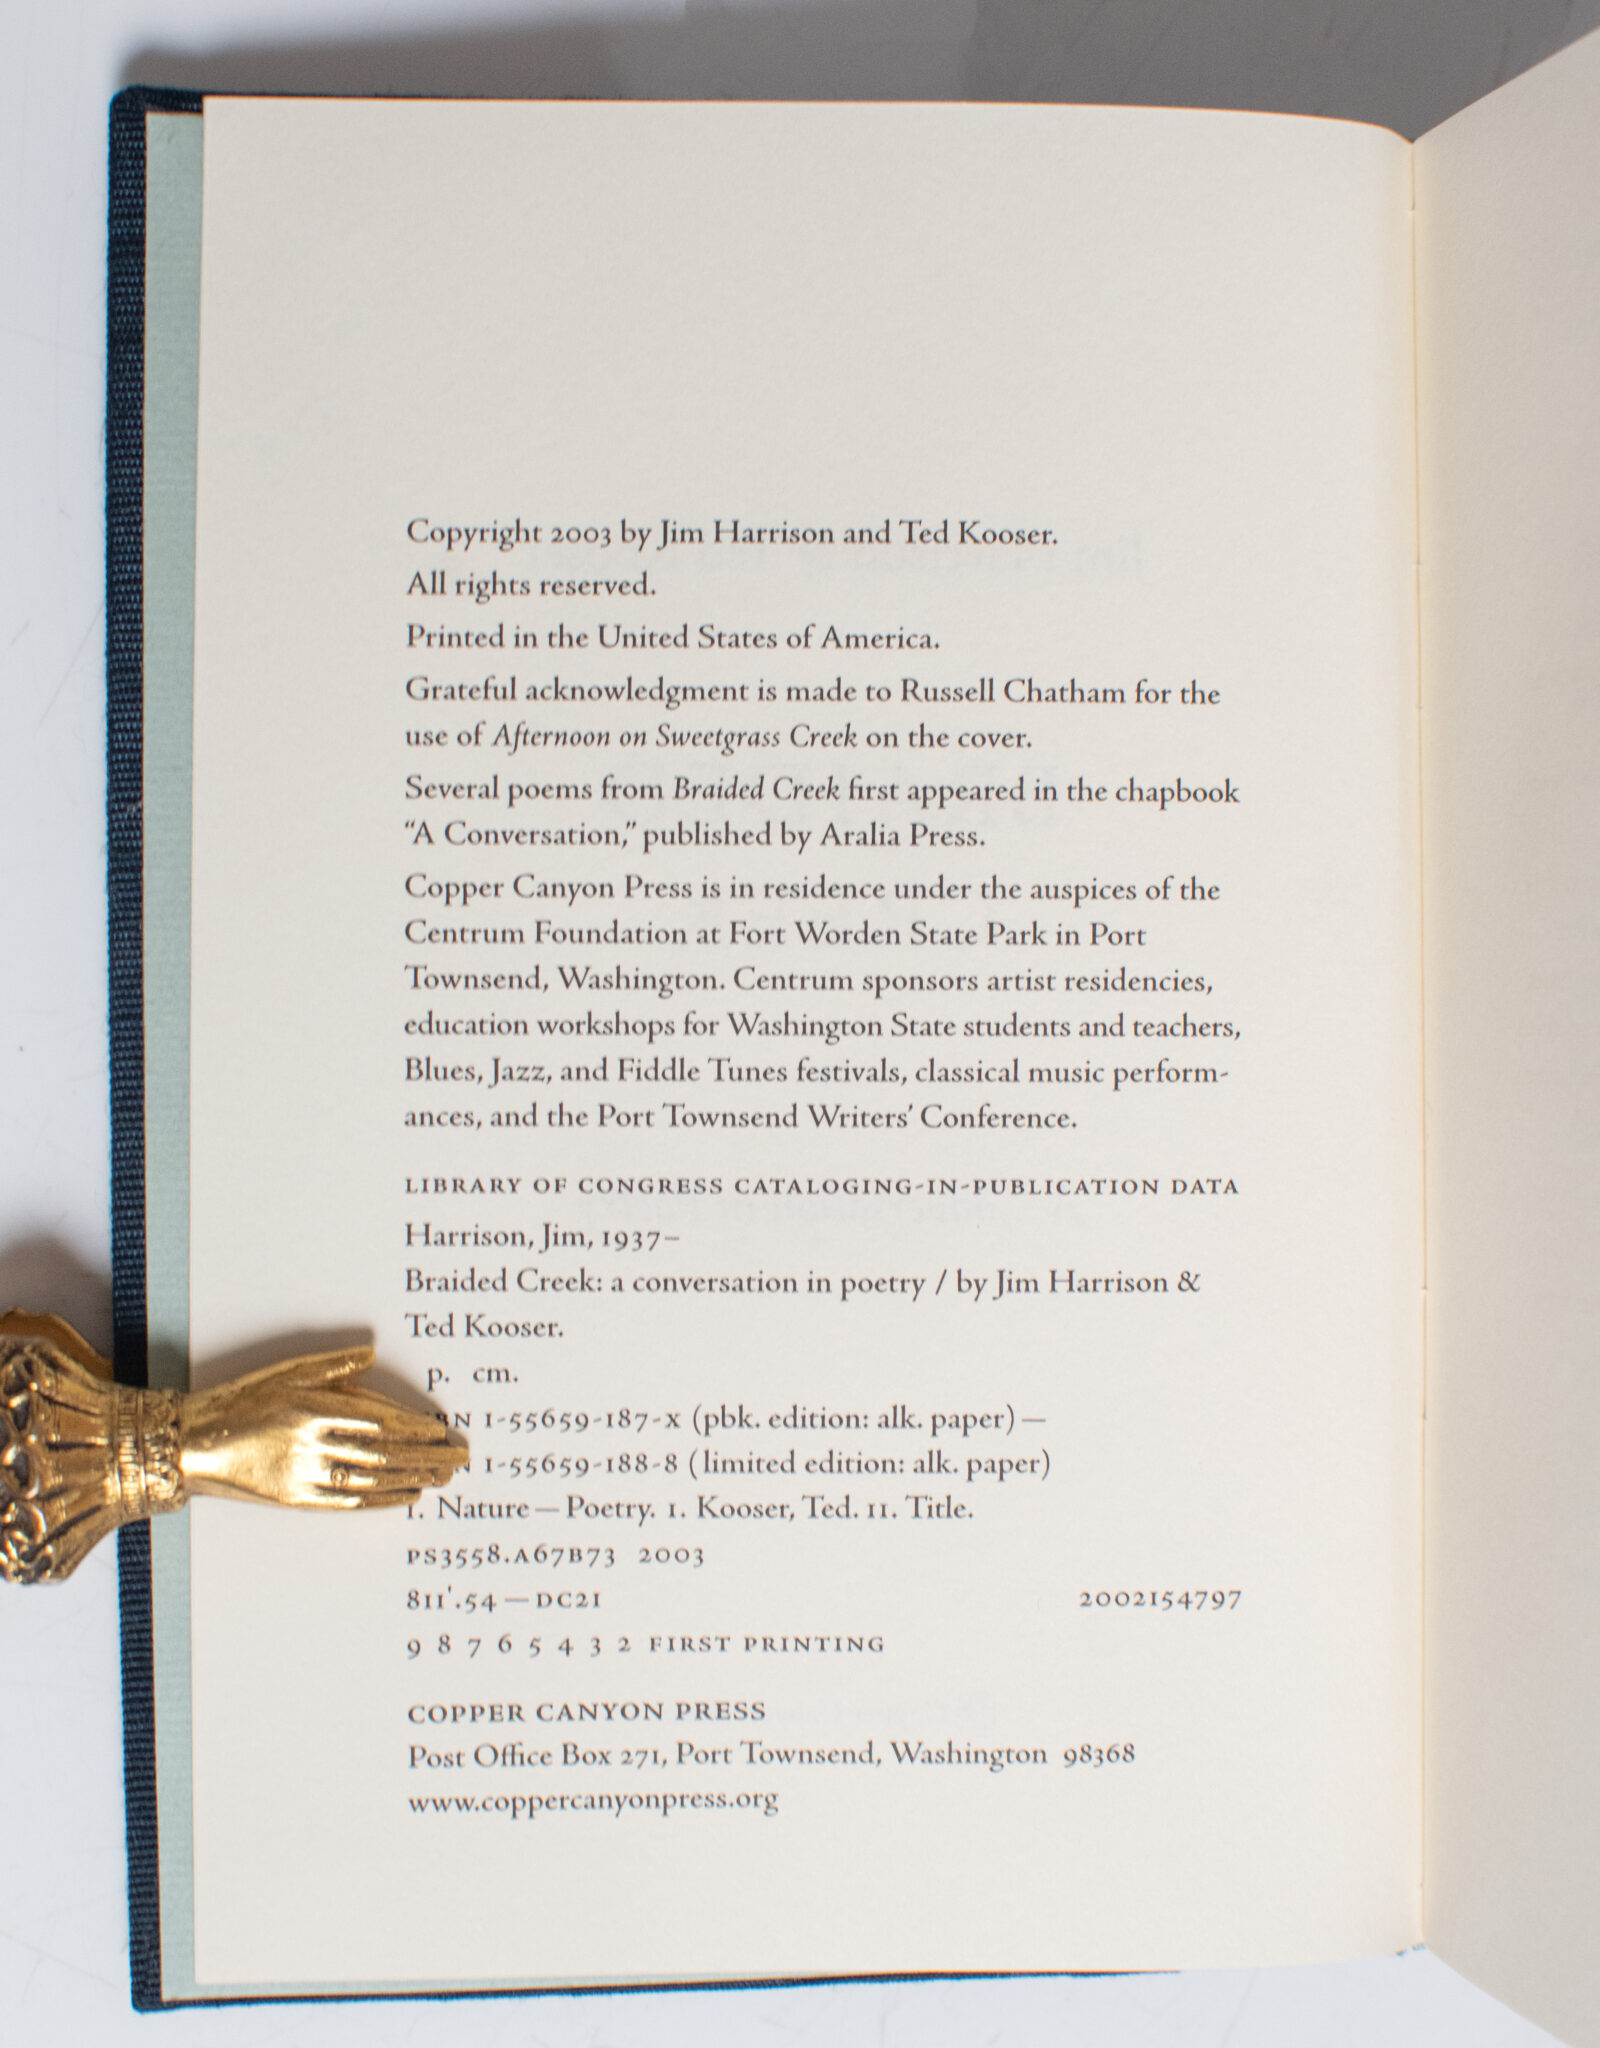 Copyright 2003 by Jim Harrison and Ted Kooser.
All rights reserved.
Printed in the United States of America.
Grateful acknowledgment is made to Russell Chatham for the
use of Afternoon on Sweetgrass Creek on the cover.
Several poems from Braided Creek first appeared in the chapbook
“A Conversation,” published by Aralia Press.
Copper Canyon Press is in residence under the auspices of the
Centrum Foundation at Fort Worden State Park in Port
Townsend, Washington. Centrum sponsors artist residencies,
education workshops for Washington State students and teachers,
Blues, Jazz, and Fiddle Tunes festivals, classical music perform-
ances, and the Port Townsend Writers’ Conference.
LIBRARY OF CONGRESS CATALOGING-IN-PUBLICATION DATA
Harrison, Jim, 1937–
Braided Creek: a conversation in poetry / by Jim Harrison &
Ted Kooser.
p. cm.
1-55659-187-X (pbk. edition: alk. paper) —
1-55659-188-8 (limited edition: alk. paper)
1. Nature — Poetry. I. Kooser, Ted. II. Title.
PS3558.A67B73 2003
811'.54 — DC21 2002154797
9 8 7 6 5 4 3 2 FIRST PRINTING
COPPER CANYON PRESS
Post Office Box 271, Port Townsend, Washington 98368
www.coppercanyonpress.org